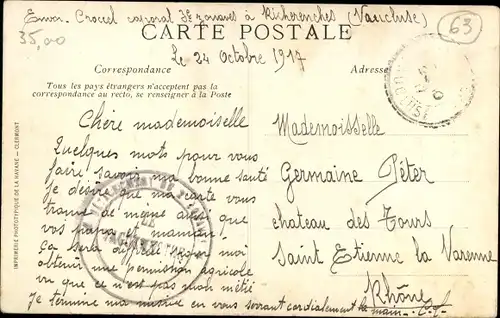 Envoi Crociel caporal 3e zouaves à Richerenches (Vaucluse)
35,00
63
CARTE POSTALE
Le 24 Octobre 1917
Correspondance
Adresse
Tous les pays étrangers n'acceptent pas la
correspondance au recto, se renseigner à la Poste
Chère mademoiselle
Quelques mots pour vous
faire savoir ma bonne santé
Je désire que ma carte vous
trouve de même ainsi que
vos papa et maman,
Ça sera difficile pour moi
obtenir une permission agricole
vu que ce n'est pas mon métier
Je termine ma missive en vous serrant cordialement la main.
Mademoisselle
Germaine Péter
chateau des Tours
Saint Etienne la Varenne
Rhône
IMPRIMERIE PHOTOTYPIQUE DE LA HAYANE - CLERMONT